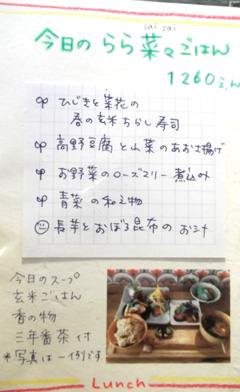 sai sai
今日の らら菜々ごはん
1260えん
ひじきと菜花の
春の玄米ちらし寿司
高野豆腐と山菜のあおさ揚げ
お野菜のローズマリー煮込み
青菜の和え物
長芋とおぼろ昆布のお汁
今日のスープ
玄米ごはん
香の物
三年番茶付
*写真は一例です
Lunch